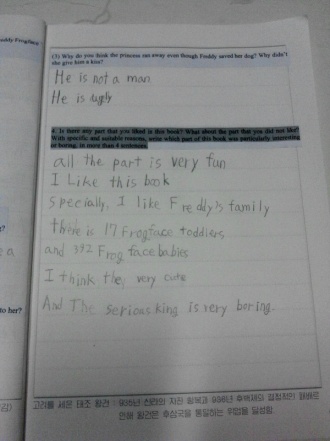 ddy Frogface
(3) Why do you think the princess ran away even though Freddy saved her dog? Why didn't
she give him a kiss?
He is not a man
He is uggly
4. Is there any part that you liked in this book? What about the part that you did not like?
With specific and suitable reasons, write which part of this book was particularly interesting
or boring, in more than 4 sentences.
all the part is very fun
I Like this book
specially, I like Freddy's family
there is 17 Frogface toddlers
and 332 Frog face babies
I think the, very cute
And The serious king is very boring.
to her?
고려를 세운 태조 왕건 : 935년 신라의 자진 항복과 936년 후백제의
인해 왕건은 후삼국을 통일하는 위업을 달성함.